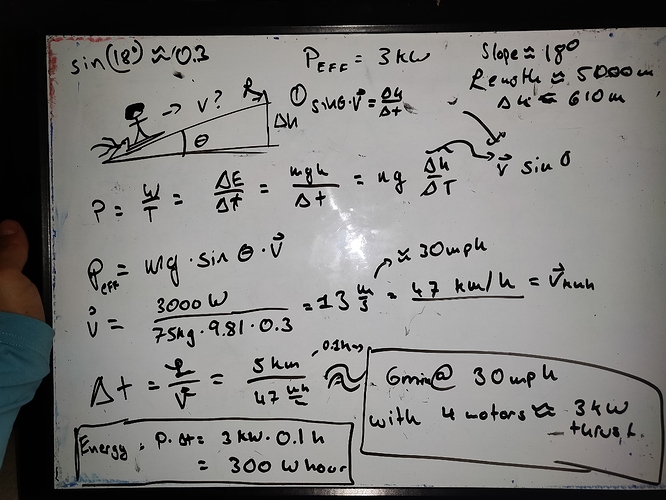 sin(18°) ≈ 0.3
P_EFF = 3 kW
Slope ≈ 18°
Length ≈ 5000m
Δh ≈ 610 m
→ V?
Δh
θ
① sinθ·V⃗ = Δh/Δt
P = W/T = ΔE/Δt = mgh/Δt = mg Δh/ΔT
V⃗ sin θ
P_eff = mg · sin θ · V⃗
≈ 30mph
V⃗ = 3000 W / 75kg · 9.81 · 0.3 = 13 m/s = 47 km/h = V⃗
Δt = / V = 5 km / 47 ≈
6min @ 30 mph
with 4 motors ≈ 3kW
Energy: P·Δt = 3 kW · 0.1 h
= 300 W hour